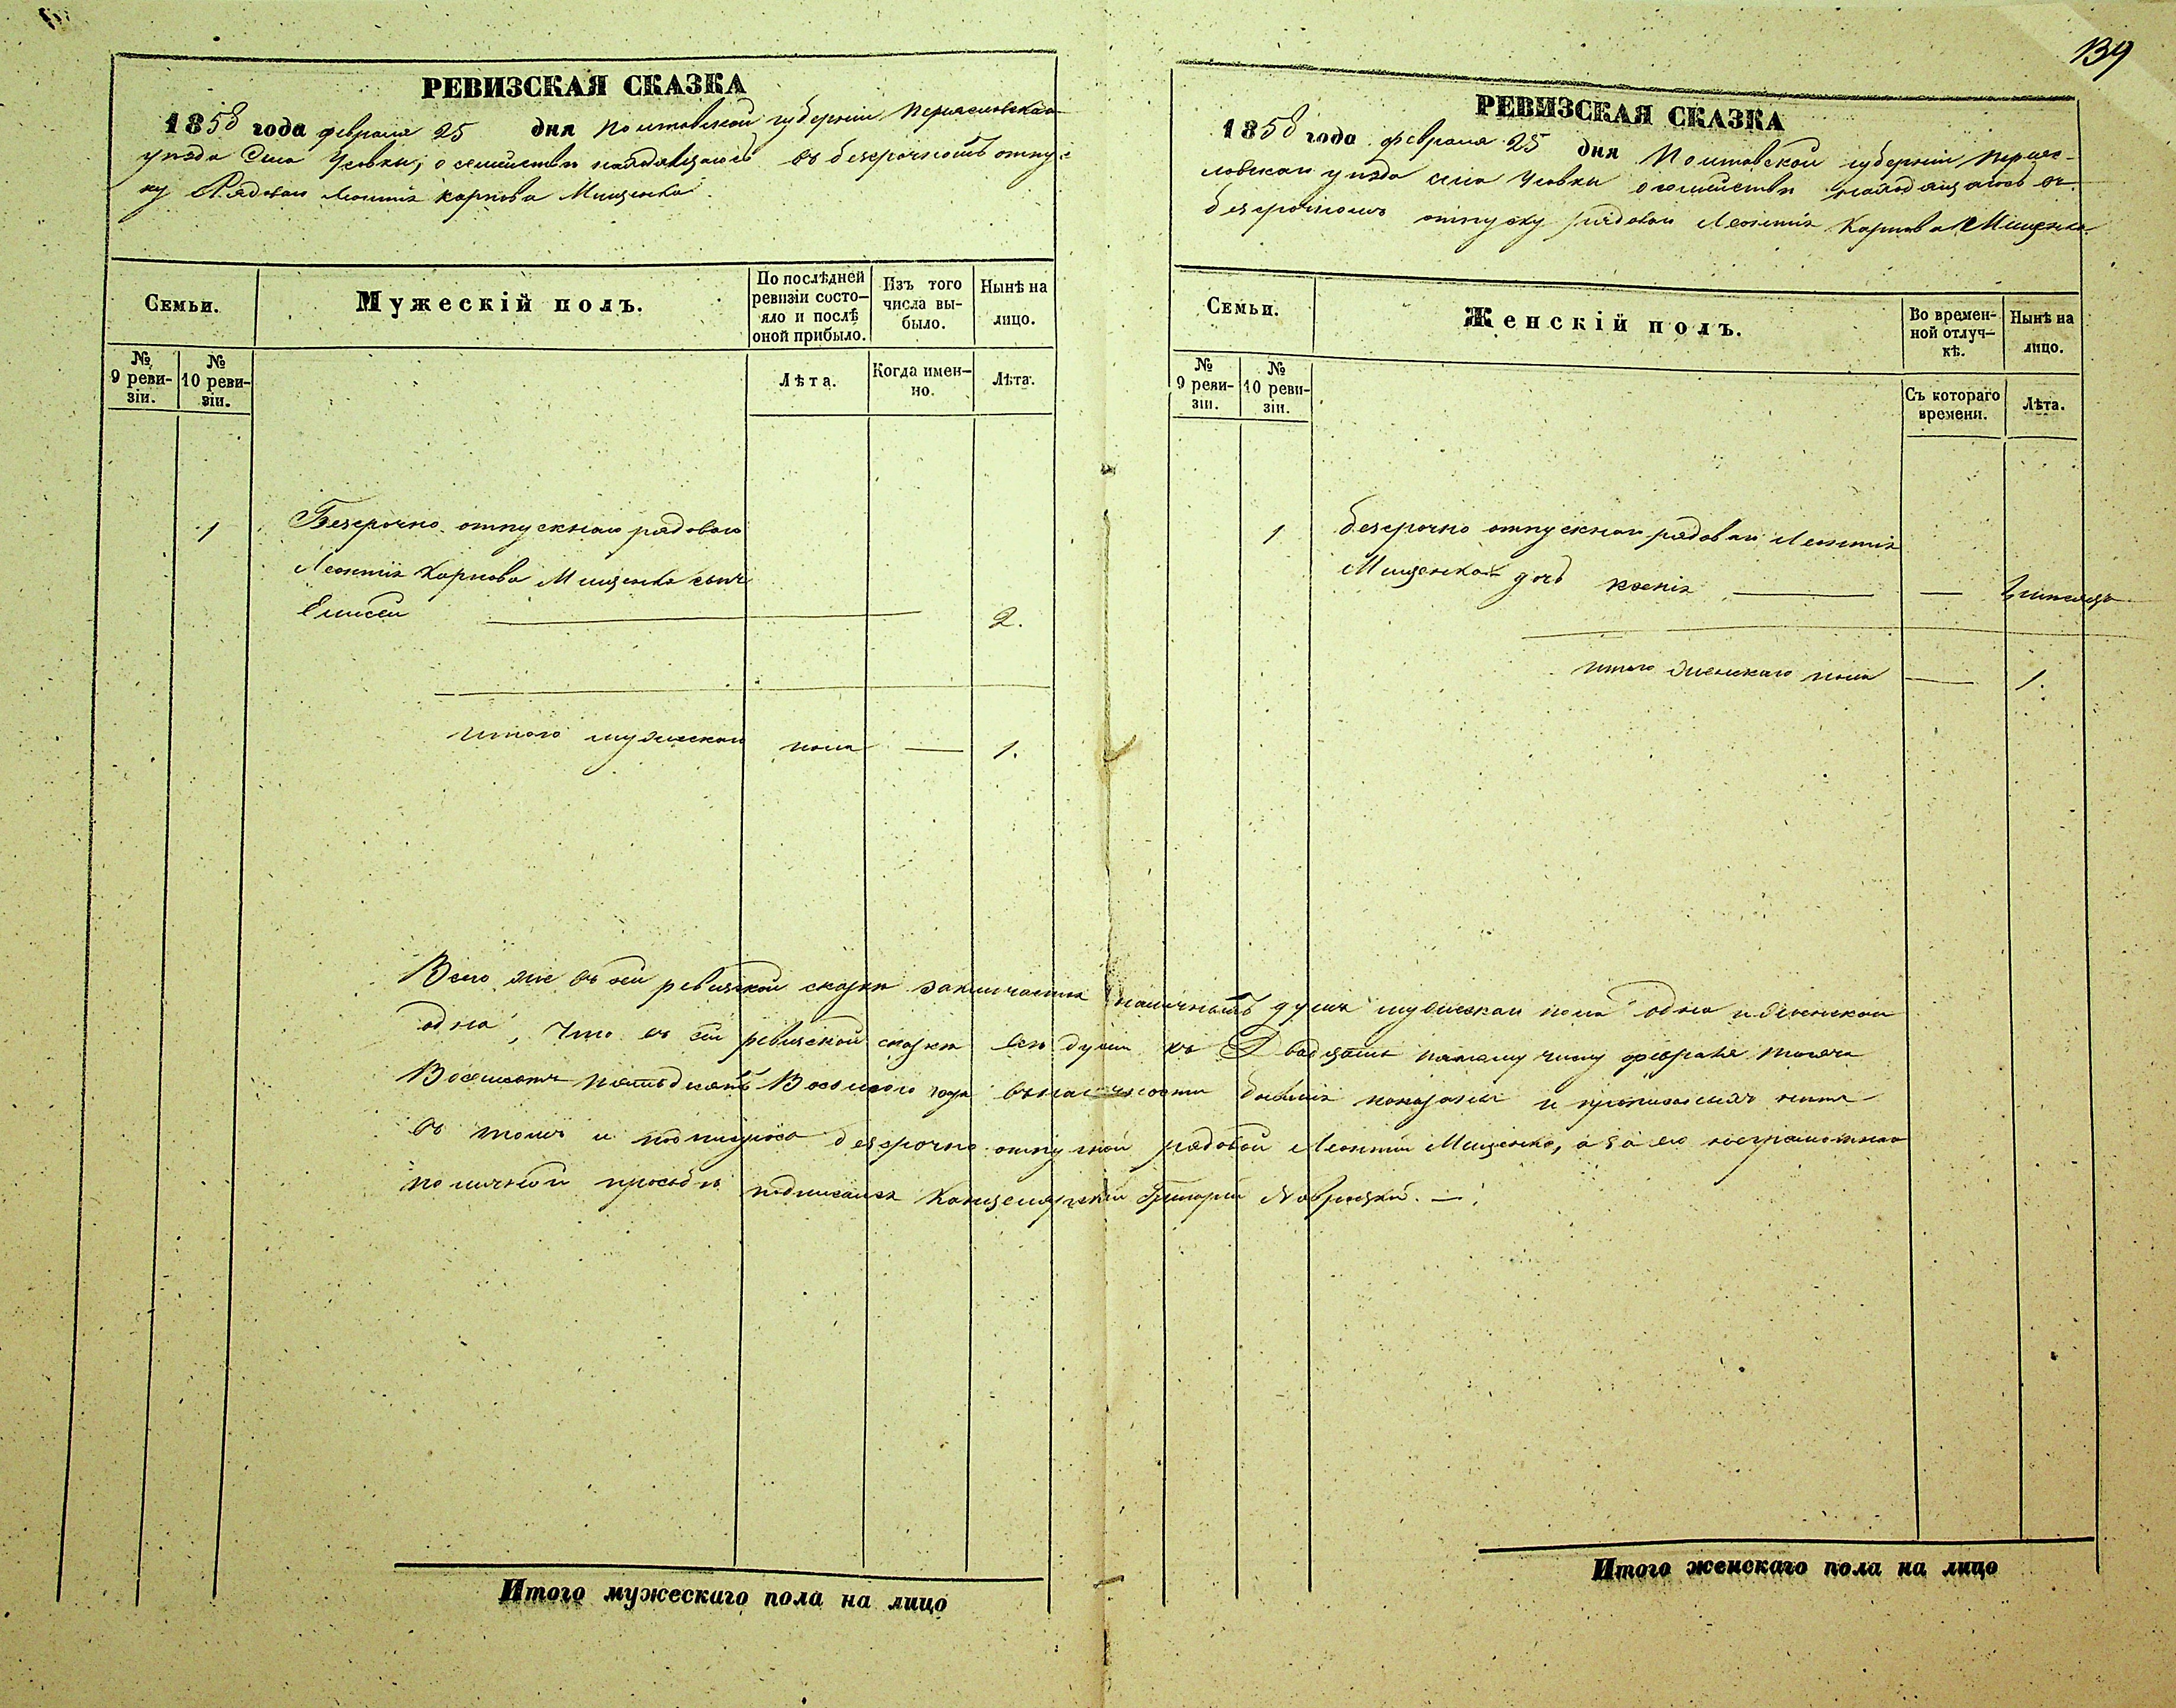 139
РЕВИЗСКАЯ СКАЗКА
1858 года февраля 25 дня Полтавской губернии Переяславскаго
уезда Села Усовки, о семействе находящагось въ безсрочномъ отпу-
ку Рядоваго Леонтія Карпова Мищенка
Семьи.
Мужескій полъ.
По послѣдней ревизіи состо-яло и послѣ оной прибыло.
Изъ того числа вы-было.
Нынѣ на лицо.
№ 9 реви-зіи.
№ 10 реви-зіи.
Лѣта.
Когда имен-но.
Лѣта.
1 Безсрочно отпускнаго рядоваго
Леонтія Карпова Мищенка сынъ
Елисей 2.
Итого мужескаго пола — 1.
РЕВИЗСКАЯ СКАЗКА
1858 года февраля 25 дня Полтавской губерніи Переяс-
лавскаго уезда села Усовки о семействе находящагось въ
безсрочномъ отпуску рядоваго Леонтія Карпова Мищенка
Семьи.
Женскій полъ.
Во времен-ной отлуч-кѣ.
Нынѣ на лицо.
№ 9 реви-зіи.
№ 10 реви-зіи.
Съ котораго времени.
Лѣта.
1 безсрочно отпускнаго рядоваго Леонтія
Мищенка дочь Ксенія —
итого женскаго пола — 1.
Всего же въ сей ревизской сказке заключается наличныхъ душъ мужескаго пола одна и женскаго
одна, Что въ сей ревизской сказке все души къ Двадцать пятому числу февраля тысяча
Восемсотъ пятьдесятъ Восьмого года въ наличности бывшія показаны и прописанныхъ нетъ
въ томъ и подписуюсь безсрочно отпускной рядовой Леонтий Мищенко, а за его неграмотнаго
по личной прозьбе подписался Канцелярский Григорий Навроцкий. —
Итого мужескаго пола на лицо
Итого женскаго пола на лицо